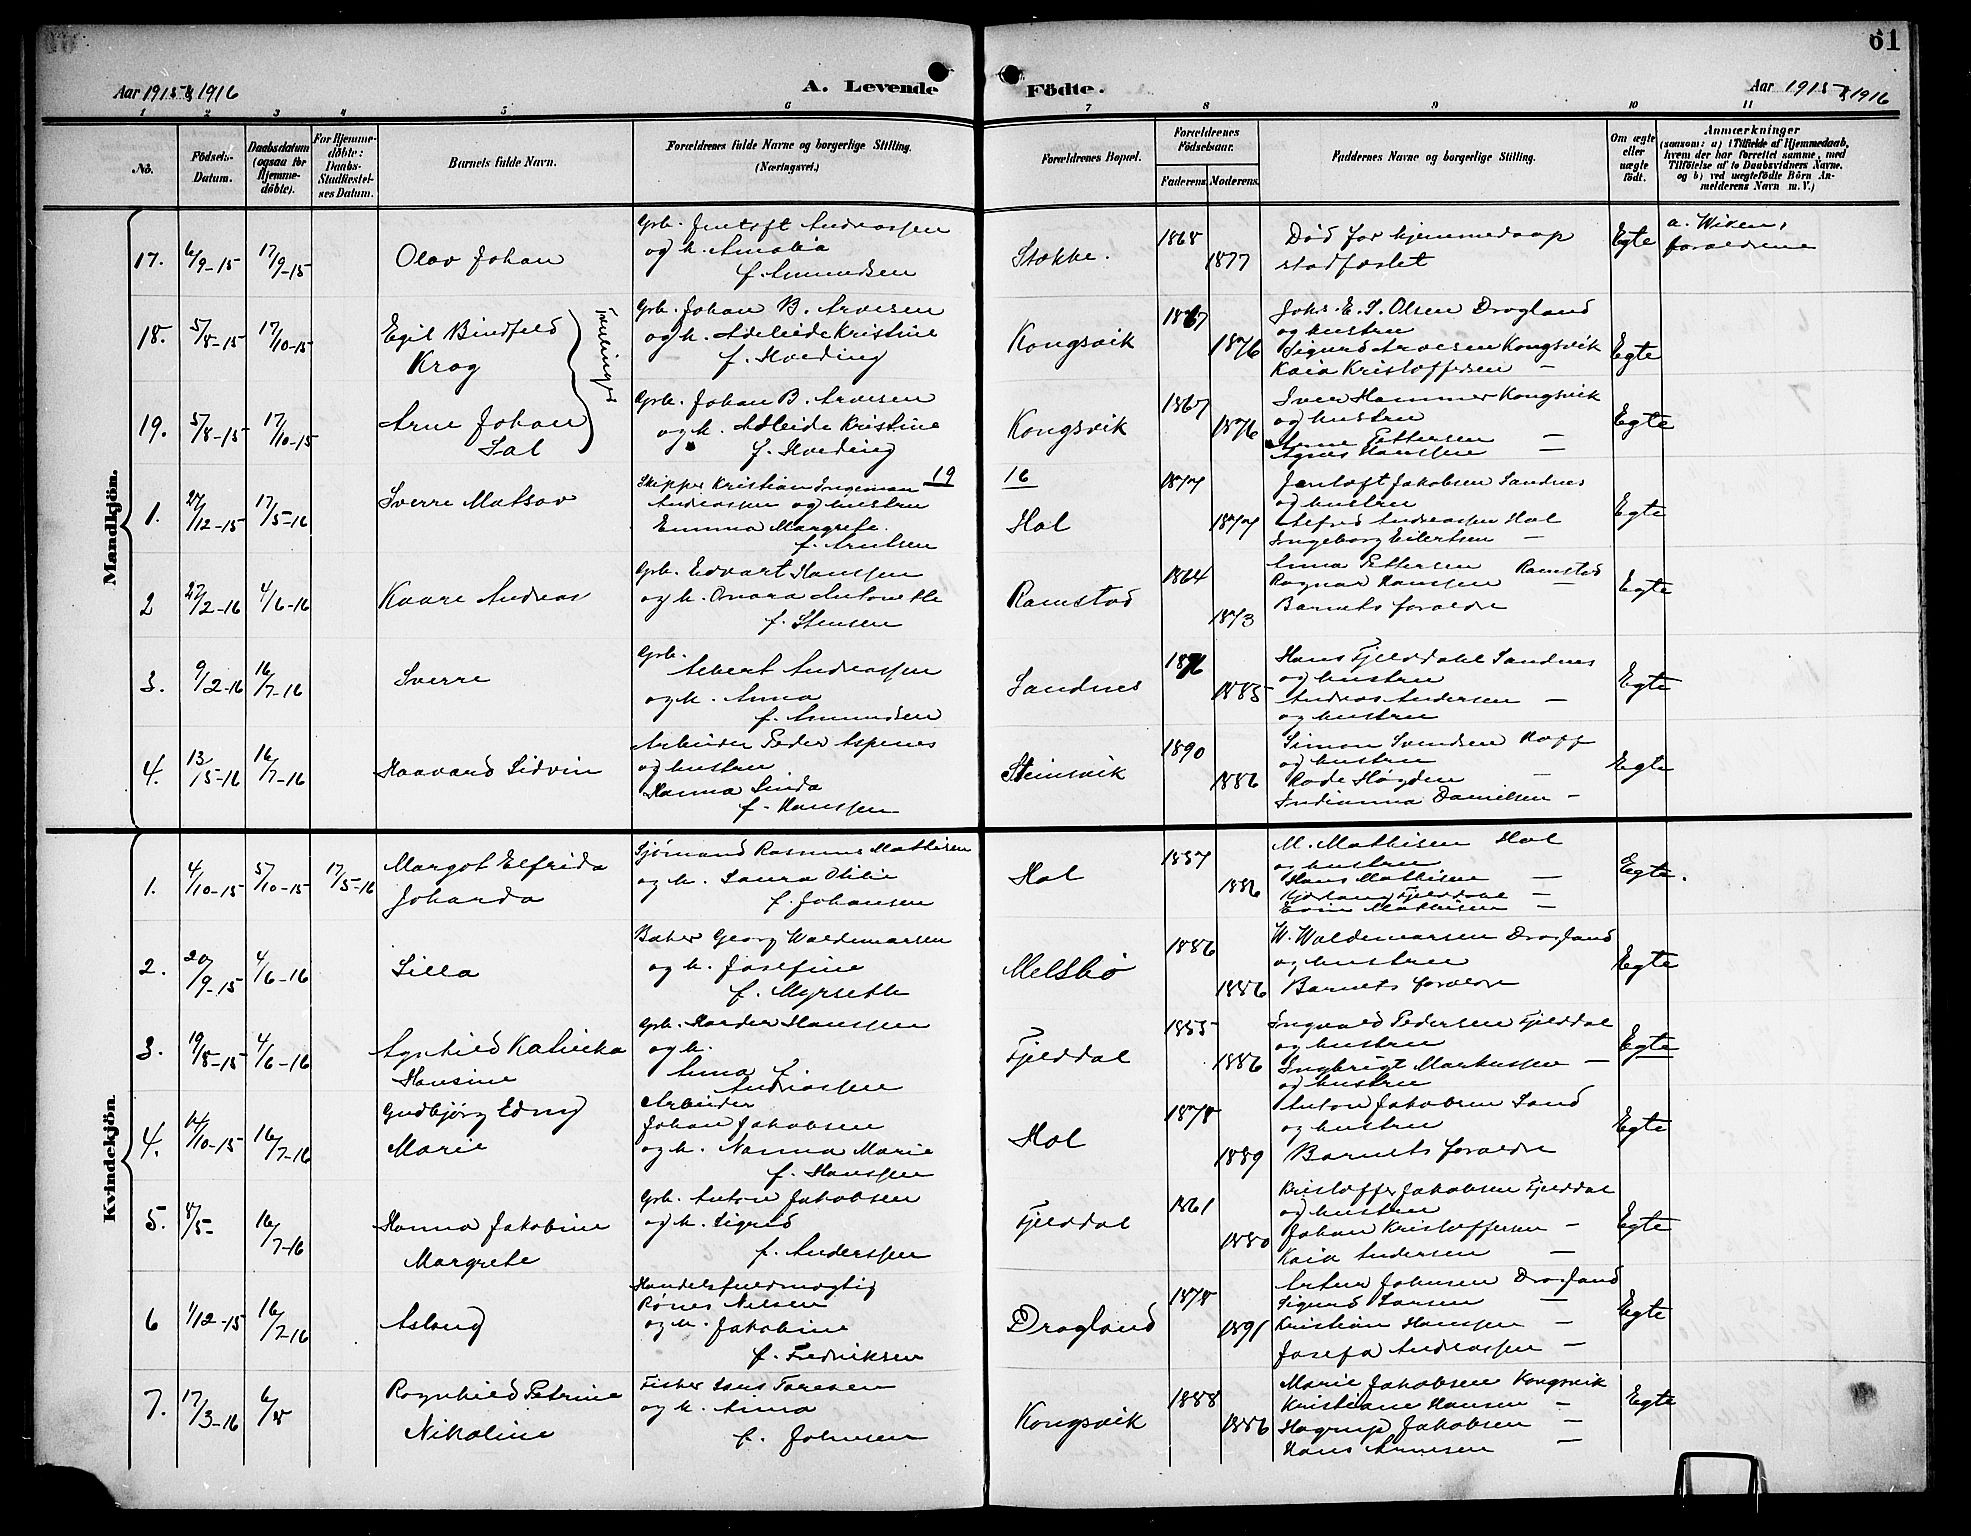 61
Aar 1915 & 1916
A. Levende Födte.
Aar 1915 & 1916
1 2 3 4 5 6 7 8 9 10 11
No.
Födsels-Datum.
Daabsdatum (ogsaa for Hjemme-döbte).
For Hjemme-döbte: Daabs-Stadfæstel-ses Datum.
Barnets fulde Navn.
Forældrenes fulde Navne og borgerlige Stilling. (Næringsvei.)
Forældrenes Bopæl.
Forældrenes Födselsaar.
Faderens. Moderens.
Faddernes Navne og borgerlige Stilling.
Om ægte eller uægte födt.
Anmærkninger
(saasom: a) i Tilfælde af Hjemmedaab, hvem der har forrettet samme, med Tilföielse af to Daabsvidners Navne, og b) ved uægtefödte Börn An-melderens Navn m. V.)
Mandkjön.
17. 6/9-15 17/9-15 Olav Johan
Grb. Jentoft Andreassen
og h. Amalia
f. Amundsen
Stokke. 1868 1877
Död før hjemmedaap
stadfæstet
Egte
a. Wiken,
forældrene
18. 5/8-15 17/10-15 Egil Bindfeld
Krog
Tvillinger
Grb. Johan B. Arvesen
og h. Adeleide Kristine
f. Hveding
Kongsvik 1867 1876
Johs. E. S. Olsen Drogland
og hustru
Sigurd Arvesen Kongsvik
Kaia Kristoffersen -
Egte
19. 5/8-15 17/10-15 Arne Johan
Grb. Johan B. Arvesen
og h. Adleide Kristine
f. Hveding
Kongsvik 1867 1876
Sven Hammer Kongsvik
og hustru
Anne Pettersen -
Agnes Hanssen -
Egte
19 16
1. 27/12-15 17/5-16 Sverre Matsov
Skipper Kristian Ingeman
Andreassen og hustru
Emma Margrete.
f. Arntsen
Hol 1877 1877
Jentoft Jakobsen Sandnes
og hustru
Alfred Andreassen Hol
Ingeborg Eilertsen -
Egte
2 27/2-16 4/6-16 Kaare Andreas
Grb. Edvart Hanssen
og h. Onara Antonette
f. Stensen
Ramstad 1864 1873
Anna Pettersen Ramstad
Ragnar Hanssen -
Barnets forældre
Egte
3. 9/2-16 16/7-16 Sverre
Grb.
Albert Andreassen
og h. Anna
f. Amundsen
Sandnes 1876 1885
Hans Fjelddahl Sandnes
og hustru
Andreas Andersen -
og hustru
Egte
4. 13/5-16 16/7-16 Haavard Lidvin
Arbeider Peder Aspenes
og hustru
Hanna Linda
f. Hanssen
Steinsvik 1890 1886
Simon Svendsen
og hustru
Høgden -
Indianna Danielsen -
Egte
Kvindekjön.
1. 4/10-15 5/10-15 17/5-16 Margot Elfrida
Johanda
Sjömand Rasmus Mathisen
og h. Laura Otilie
f. Johansen
Hol 1887 1886
M. Mathisen Hol
og hustru
Hans Mathisen -
Fjelddahl -
Mathisen -
Egte.
2. 20/9-15 4/6-16 Lilla
Baker Georg Waldemarsen
og h. Josefine
f. Myrseth
Melsbö 1886 1886
W. Waldemarsen Drogland
og hustru
Barnets forældre
Egte
3. 19/8-15 4/6-16 Agnhild Kalvika
Hansine
Grb. Harder Hanssen
og h.
Anna f.
Andreassen
Fjelddal 1885 1886
Ingvald Pedersen Fjelddal
og hustru
Ingbrigt Markussen -
og hustru
Egte
4. 14/10-15 16/7-16 Gudbjörg Edny
Marie
Arbeider
Johan Jakobsen
og h. Nanna Marie
f. Hanssen
Hol 1878 1889
Anton Jakobsen Sand
og hustru
Barnets forældre
Egte
5. 8/5- 16/7-16 Hanna Jakobine
Margrete
Grb. Anton Jakobsen
og h. Sigrid
f. Anderssen
Fjelddal 1861 1880
Kristoffer Jakobsen Fjelddal
og hustru
Johan Kristoffersen -
Kaia Andersen -
Egte
6 1/12-15 16/7-16 Aslaug
Handelsfuldmægtig
Rønes Nilsen
og h. Jakobine
f. Fredriksen
Drogland 1878 1891
Arthur Johnsen Drogland
Sigurd Larsen -
Kristian Hanssen -
Josefa Andreassen -
Egte
7. 17/3-16 6/8 Ragnhild Petrine
Nikoline
Fisker Jens Toresen
og h. Anna
f. Johnsen
Kongsvik 1888 1886
Marie Jakobsen Kongsvik
Kristiane Hansen -
Hagrup Jakobsen -
Hans Arnesen -
Egte